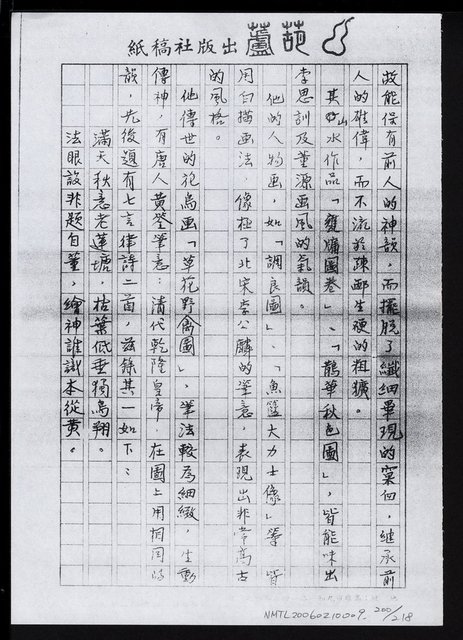 葫蘆出版社稿紙
故能保有前人的神韻,而擺脫了纖細畢現的窠臼,繼承前
人的雄偉,而不流於疎鄙生硬的粗獷。
其山水作品「雙爐圖卷」、「鵲華秋色圖」,皆能味出
李思訓及董源画風的氣韻。
他的人物画,如「調良圖」、「魚籃大力士像」等,皆
用白描画法,像極了北宋李公麟的筆意,表現出非常高古
的風格。
他傳世的花鳥画「草花野禽圖」,筆法較為細緻,生動
傳神,有唐人黃筌筆意;清代乾隆皇帝,在圖上用相同的
韻,先後題有七言律詩二首,茲錄其一如下:
滿天秋意老蓮塘,枯葉低垂獨鳥翔。
法眼設非題自董,繪神誰識本從黃。
NMTL20060210009. 200/218